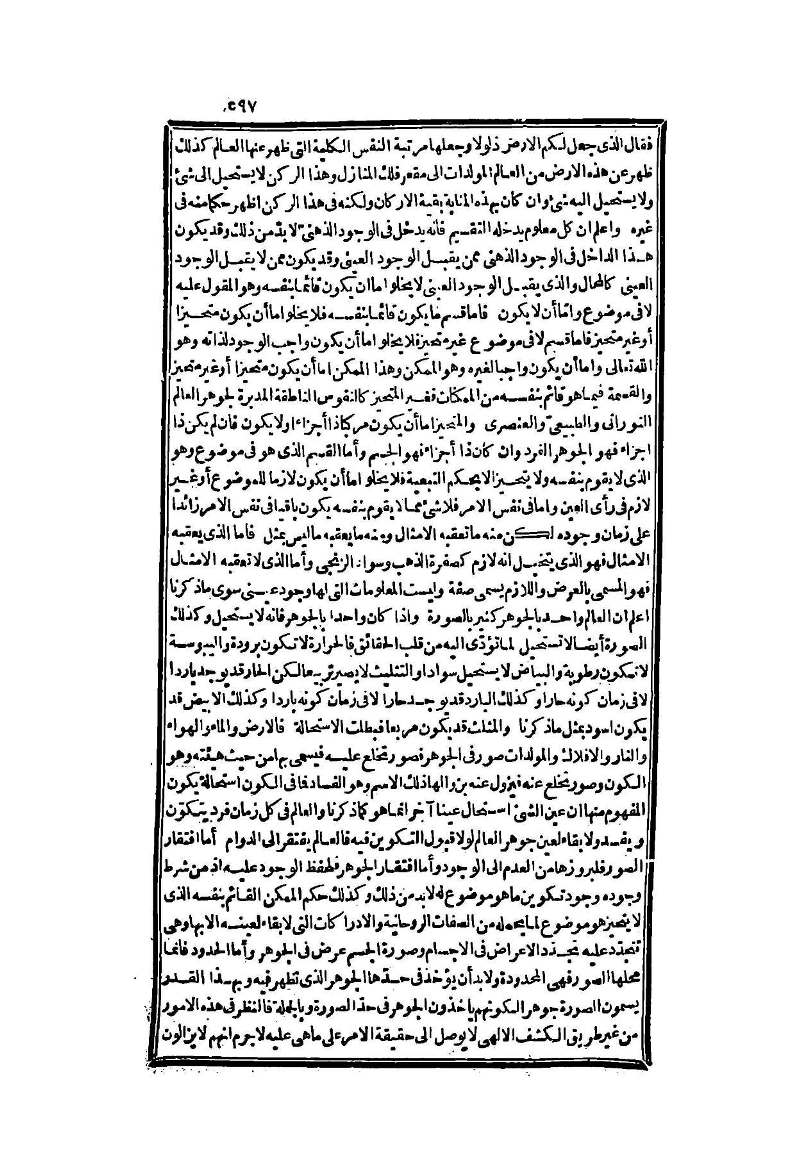 ٥٩٧
فقال الذى جعل لكم الارض ذلولا وجعلها مرتبة النفس الكلية التى ظهر عنها العالم كذلك
ظهر عن هذه الارض من العالم المولدات الى مقعر فلك المنازل وهذا الركن لا يستحيل الى شئ
ولا يستحيل اليه شئ وان كان بهذه المثابة بقية الاركان ولكنه فى هذا الركن اظهر حكما منه فى
غيره واعلم ان كل معلوم يدخله التقسيم فانه يدخل فى الوجود الذهنى لا بد من ذلك وقد يكون
هذا الداخل فى الوجود الذهنى ممن يقبل الوجود العينى وقد يكون ممن لا يقبل الوجود
العينى كالمحال والذى يقبل الوجود العينى لا يخلو اما ان يكون قائما بنفسه وهو المقول عليه
لا فى موضوع واما أن لا يكون فاما قسم ما يكون قائما بنفسه فلا يخلو اما أن يكون متحيزا
أو غير متحيز فاما قسم لا فى موضوع غير متحيز فلا يخلو اما أن يكون واجب الوجود لذاته وهو
الله تعالى واما أن يكون واجبا لغيره وهو الممكن وهذا الممكن اما أن يكون متحيزا أو غير متحيز
والقسمة فيما هو قائم بنفسه من الممكنات فغير المتحيز كالنفوس الناطقة المدبرة لجوهر العالم
النورانى والطبيعى والعنصرى والمتحيز اما أن يكون مركبا ذا أجزاء أو لا يكون فان لم يكن ذا
اجزاء فهو الجوهر الفرد وان كان ذا أجزاء فهو الجسم وأما القسم الذى هو فى موضوع وهو
الذى لا يقوم بنفسه ولا يتحيز الا بحكم التبعية فلا يخلو اما أن يكون لازما للموضوع أو غير
لازم فى رأى العين واما فى نفس الامر فلا شئ مما لا يقوم بنفسه يكون باقيا فى نفس الامر زائدا
على زمان وجوده لكن منه ما تعقبه الامثال ومنه ما يعقبه ما ليس بمثل فاما الذى يعقبه
الامثال فهو الذى يتخيل انه لازم كصفرة الذهب وسواد الزنجى وأما الذى لا تعقبه الامثال
فهو المسمى بالعرض واللازم يسمى صفة وليست المعلومات التى لها وجود عينى سوى ما ذكرنا
اعلم ان العالم واحد بالجوهر كثير بالصورة واذا كان واحدا بالجوهر فانه لا يستحيل وكذلك
الصورة أيضا لا تستحيل لما تؤدى اليه من قلب الحقائق فالحرارة لا تكون برودة واليبوسة
لا تكون رطوبة والبياض لا يستحيل سوادا والتثليث لا يصير تربيعا لكن الحار قد يوجد باردا
لا فى زمان كونه حارا وكذلك البارد قد يوجد حارا لا فى زمان كونه باردا وكذلك الابيض قد
يكون اسود بمثل ما ذكرنا والمثلث قد يكون مربعا فبطلت الاستحالة فالارض والماء والهواء
والنار والافلاك والمولدات صور فى الجوهر فصور تخلع عليه فيسمى بها من حيث هيئته وهو
الكون وصور تخلع عنه فيزول عنه بزوالها ذلك الاسم وهو الفساد فما فى الكون استحالة يكون
المفهوم منها ان عين الشئ استحال عينا آخر انما هو كما ذكرنا والعالم فى كل زمان فرد يتكون
ويفسد ولا بقاء لعين جوهر العالم لولا قبول التكوين فيه فالعالم يفتقر الى الدوام أما افتقار
الصور فلبروزها من العدم الى الوجود وأما افتقار الجوهر فلحفظ الوجود عليه اذ من شرط
وجوده وجود تكوين ما هو موضوع له لا بد من ذلك وكذلك حكم الممكن القائم بنفسه الذى
لا يتحيز هو موضوع لما يحمله من الصفات الروحانية والادراكات التى لا بقاء لعينه الا بها وهى
تتجدد عليه تجدد الاعراض فى الاجسام وصورة الجسم عرض فى الجوهر وأما الحدود فانما
محلها الصور فهى المحدودة ولا بد أن يؤخذ فى حدها الجوهر الذى تظهر فيه وبهذا القدر
يسمون الصورة جوهرا لكونهم يأخذون الجوهر فى حد الصورة وبالجملة فالنظر فى هذه الامور
من غير طريق الكشف الالهى لا يوصل الى حقيقة الامر على ما هى عليه لا جرم انهم لا يزالون